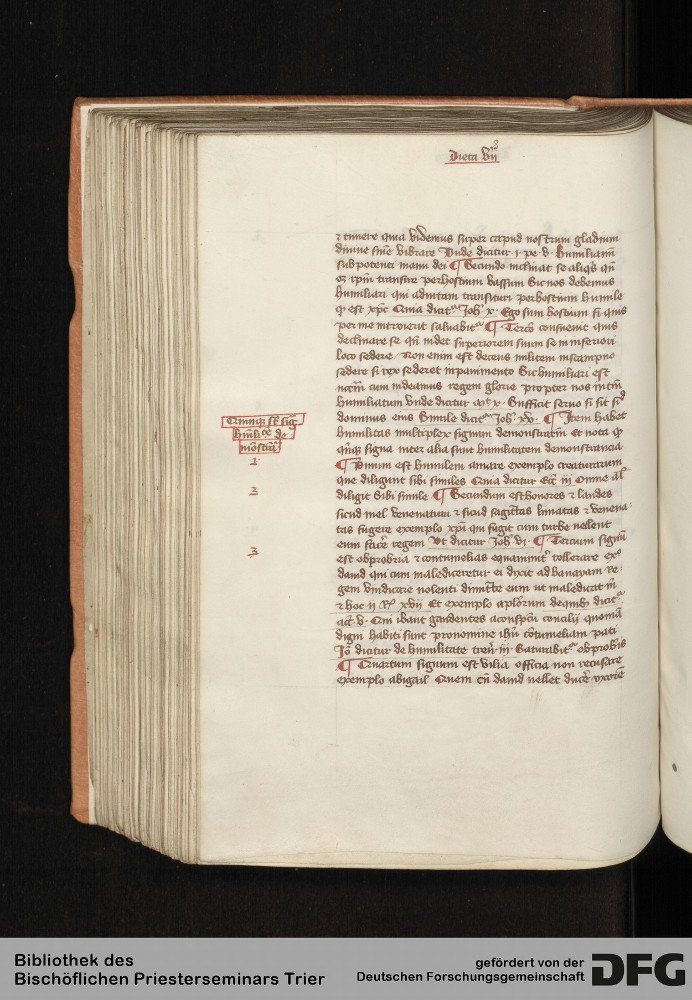 Dieta vij
⁊ timere quia videmus super capud nostrum gladium
diuine sn̄ie vibrare Vnde dicitur i· pe· v· humiliaminī
sub potenti manu dei ¶ Secundo inclinat se aliqs qn̄
per hostium bassum Sic nos debemus
humiliari qui ad vitam transituri per hostium humile
qᵈ est xp̄c Quia dicitʳ Joh· x· Ego sum hostium si quis
per me introierit saluabitʳ ¶ Tercō conuenit quis
declinare se qn̄ videt superiorem suum se in inferiori
loco sedere Non enim est decens militem in scampno
sedere si rex sederet in pauimento Sic humiliari est
cum videamus regem glorie propter nos
humiliatum vnde dicitur mt x· Sufficit seruo si sit sicᵈ
dominus eius Simile dicitʳ Joh· xv· ¶ Item habet
humilitas multiplex signum Et nota qᵈ
quīqꝫ signa inter alia sunt humilitatem demonstrancia
¶ Primum est humilem amare exemplo creaturarum
que diligunt sibi similes Quia dicitur Ecc̄ iii Omne aīal
diligit sibi simile ¶ Secundum est honores ⁊ laudes
sicud mel venenatum ⁊ sicud sagittas ⁊ venena-
tas fugere exemplo xp̄i qui fugit cum turbe vellent
eum regem Vt dicitur Joh· vi· ¶ Tercium signū
est obprobria ⁊ contumelias equanimitʳ tollerare exº
dauid qui cum malediceretur ei dixit ad banayam Re-
gem vindicare nolenti dimitte eum vt maledicat m̄
⁊ hoc ii Rº xvij Et exemplo aplōrum de quibꝫ dicitʳ
act· v· Qui ibant gaudentes a conspc̄u concilij quoniā
digni habiti sunt pro nomine ihū cōtumeliam pati
Jō dicitur de humilitate tren̄· iii· Saturabitʳ obprobijs
¶ Quartum signum est vilia officia non recusare
exemplo abigail Quem cū dauid vellet ducē vxorē
Quinqꝫ st̄ siḡ
humilitatē de
mōstrā
1
2
3
Bibliothek des
Bischöflichen Priesterseminars Trier
gefördert von der
Deutschen Forschungsgemeinschaft
DFG